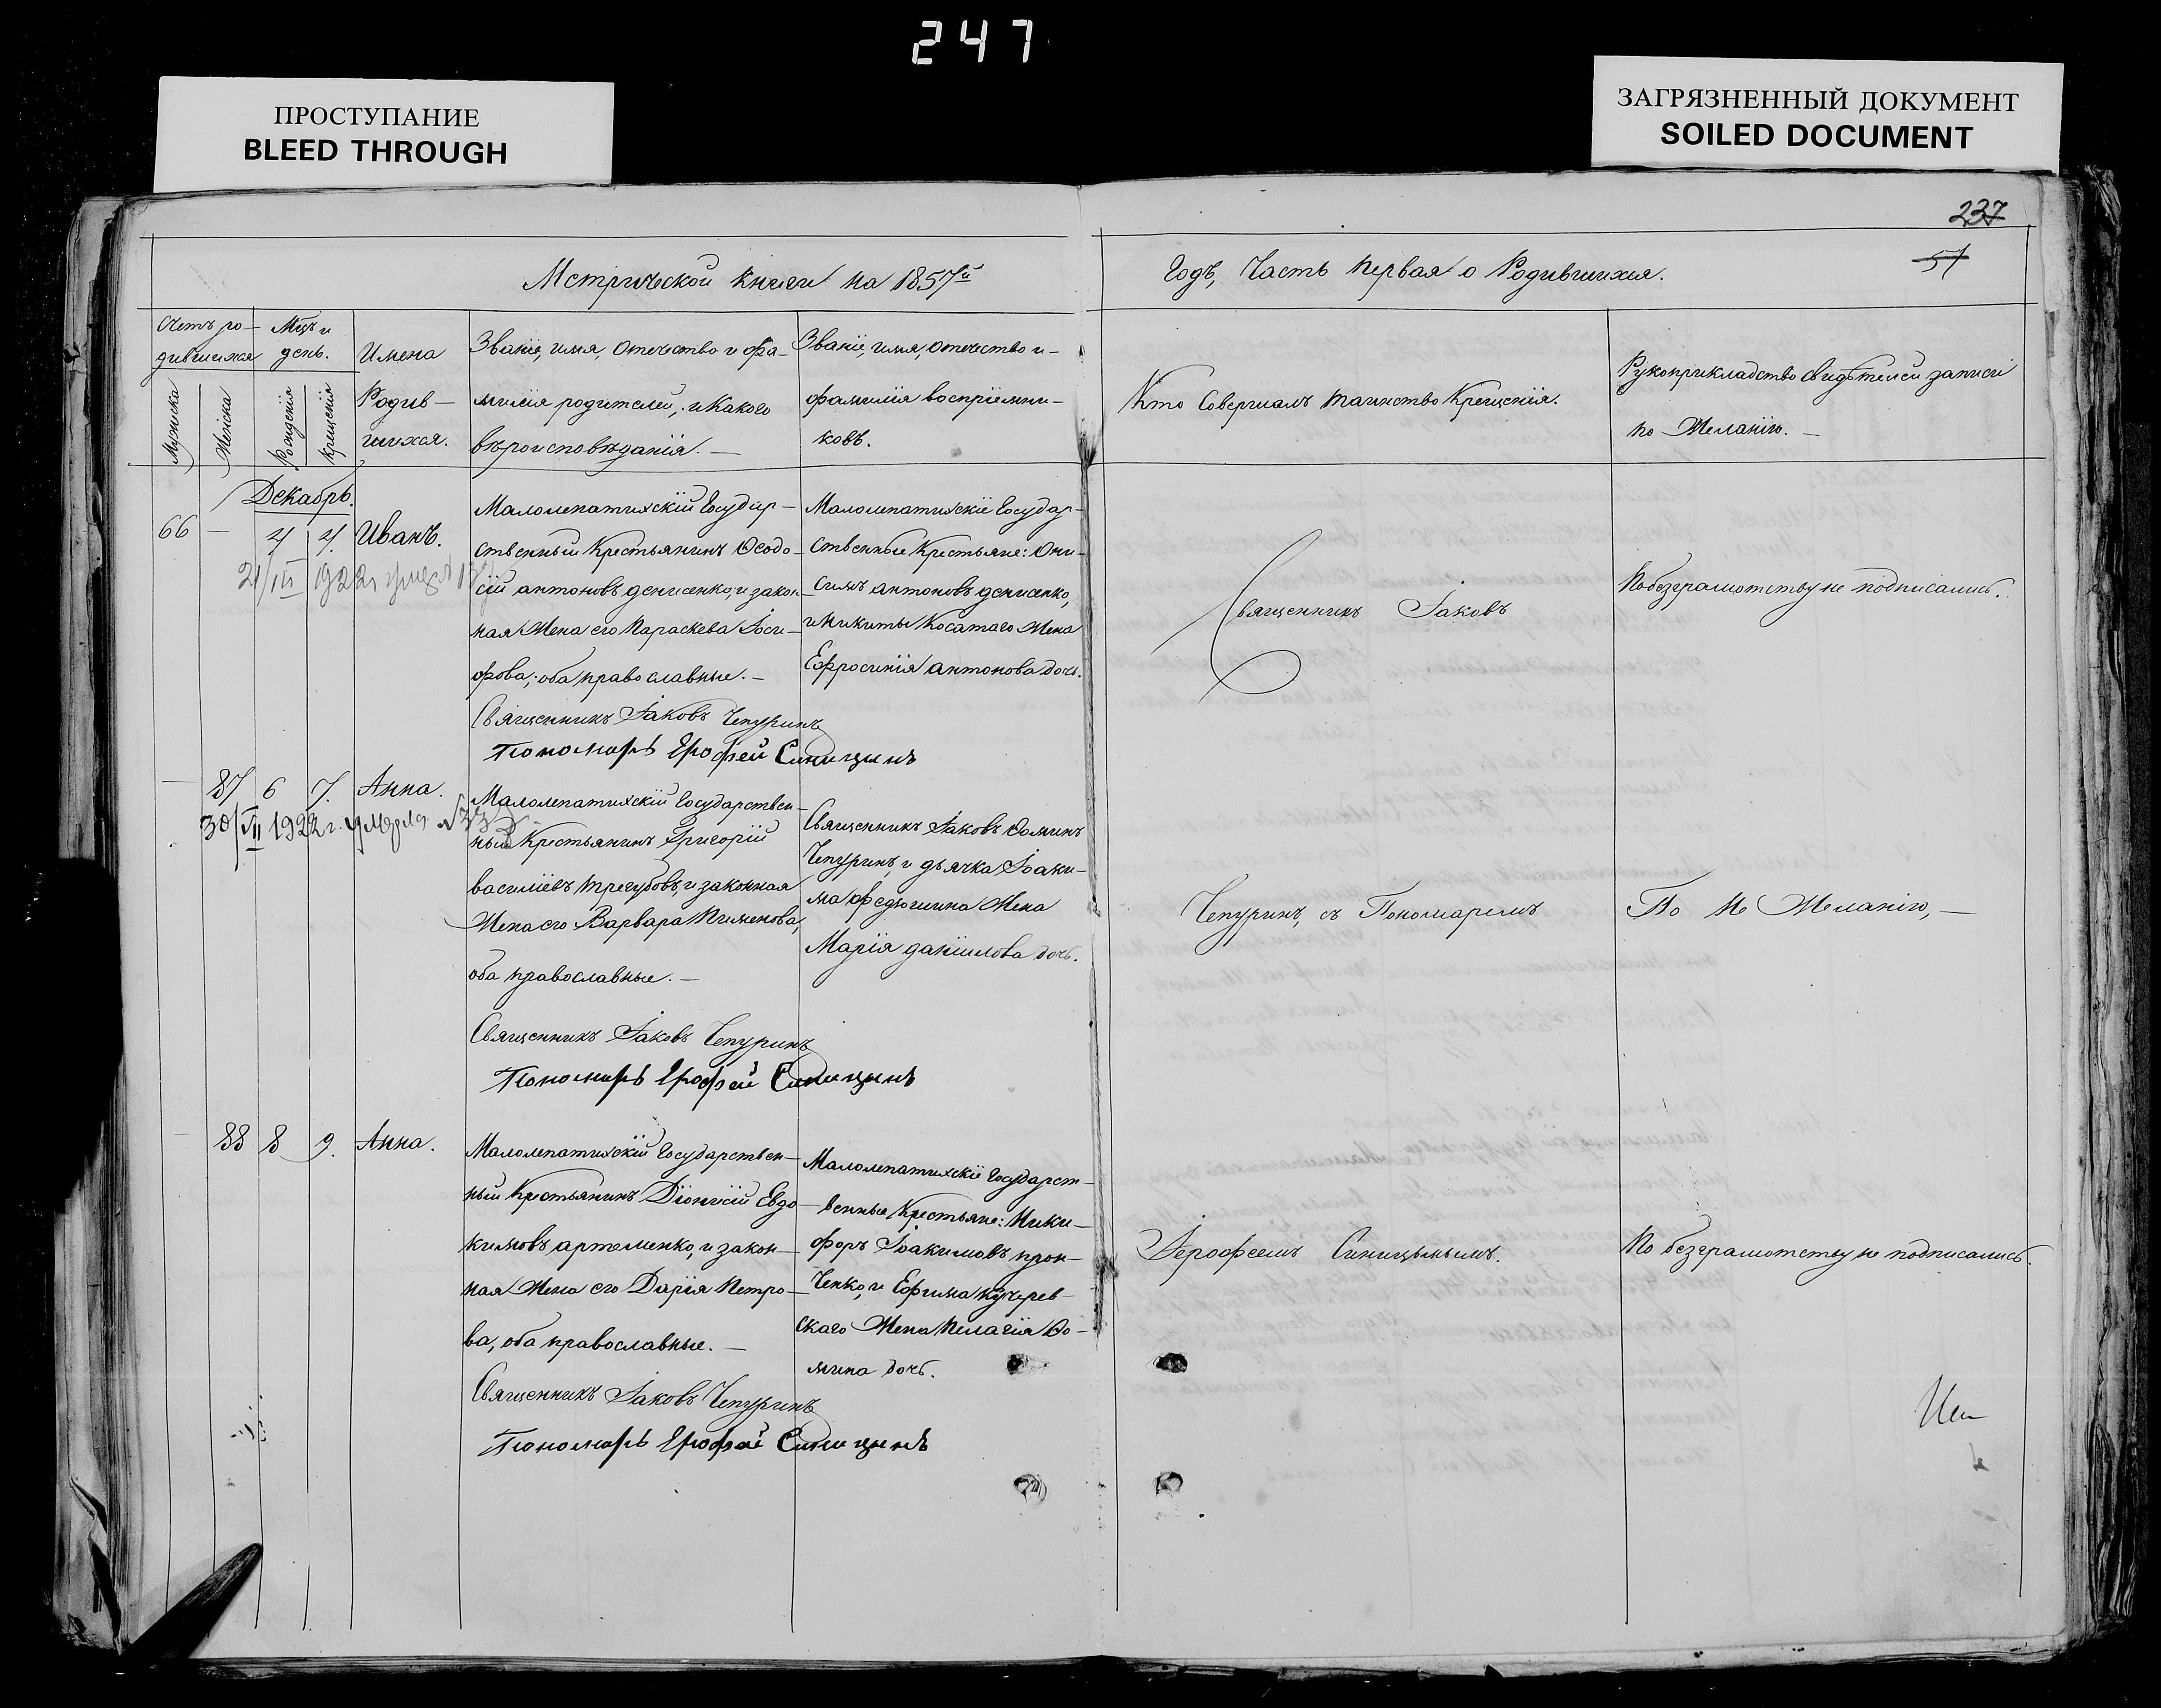 247
ПРОСТУПАНИЕ
BLEED THROUGH
ЗАГРЯЗНЕННЫЙ ДОКУМЕНТ
SOILED DOCUMENT
237
57
Метрической книги на 1857й
Годъ, Часть первая о Родившихся.
Счетъ ро-
дившихся
Мужска
Женска
Мцъ и
день.
Рожденія
Крещенія
Имена
Родив-
шихся.
Званіе, имя, отечество и фа-
милія родителей, и какого
вѣроисповѣданія. —
Званіе, имя, отечество и
фамилія воспріемни-
ковъ.
Кто Совершалъ таинство Крещенія.
Рукоприкладство свидѣтелей записи
по Желанію. —
Декабрь.
66 — 4 4. Иванъ.
21/III 1922г
Малолепатихскій Государ-
ственный Крестьянинъ Ѳеодо-
сій антоновъ денисенко, и закон-
ная Жена его Параскева Іоси-
фова; оба православные. —
Священникъ Іаковъ Чепуринъ
Пономарь Ерофей Синицынъ
Малолепатихскіе Государ-
ственные Крестьяне: Они-
симъ антоновъ денисенко,
и Никиты Косатаго Жена
Ефросинія антонова дочь.
Священникъ Іаковъ
По безграмотству не подписались.
— 87 6 7. Анна.
30/VII 1922г. умерла
Малолепатихскій Государствен-
ный Крестьянинъ Григорій
василіевъ трегубовъ, и законная
Жена его Варвара Пименова,
оба православные. —
Священникъ Іаковъ Чепуринъ
Пономарь Ерофей Синицынъ
Священникъ Іаковъ Ѳоминъ
Чепуринъ, и дьячка Іоаки-
ма федюшина Жена
Марія даніилова дочь.
Чепуринъ, съ Пономаремъ
По Не Желанію, —
— 88 8 9. Анна.
Малолепатихскій Государствен-
ный Крестьянинъ Діонисій Евдо-
кимовъ артеменко, и закон-
ная Жена его Дарія Петро-
ва, оба православные. —
Священникъ Іаковъ Чепуринъ
Пономарь Ерофей Синицынъ
Малолепатихскіе Государст-
венные Крестьяне: Ники-
форъ Іоакимовъ прон-
ченко, и Ефима кучерев-
скаго Жена Пелагія Ѳо-
мина дочь.
Іерофеемъ Синицынымъ.
По безграмотству не подписались.